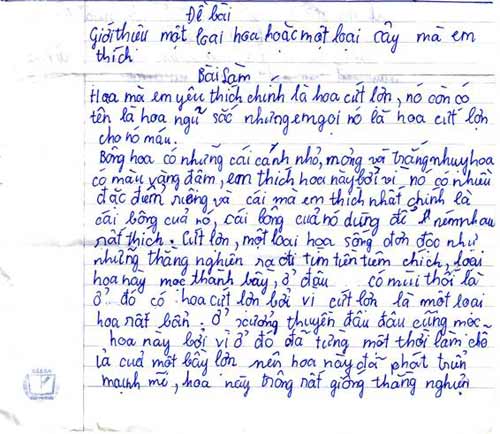 Đề bài
Giới thiệu một loại hoa hoặc một loại cây mà em
thích
Bài làm
Hoa mà em yêu thích chính là hoa cứt lợn, nó còn có
tên là hoa ngũ sắc nhưng em gọi nó là hoa cứt lợn
cho nó máu.
Bông hoa có những cái cánh nhỏ, mỏng và trắng nhuỵ hoa
có màu vàng đâm, em thích hoa này bởi vì nó có nhiều
đặc điểm riêng và cái mà em thích nhất chính là
cái bông cuả nó, cái bông cuả nó dùng để ném nhau
rất thích. Cứt lợn, một loài hoa sống đơn độc như
những thằng nghiên ra đi tìm tiền tiêm chích, loài
hoa này mọc thành bầy, ở đâu có mùi thối là
ở đó có hoa cứt lợn bởi vì cứt lợn là một loại
hoa rất bẩn. ở xương thuyền đâu đâu cũng mọc
hoa này bởi vì ở đó đã từng một thời làm chỗ
ỉa cuả một bầy lợn nên hoa này đã phát triển
mạnh mẽ, hoa này trông rất giống thằng nghiện